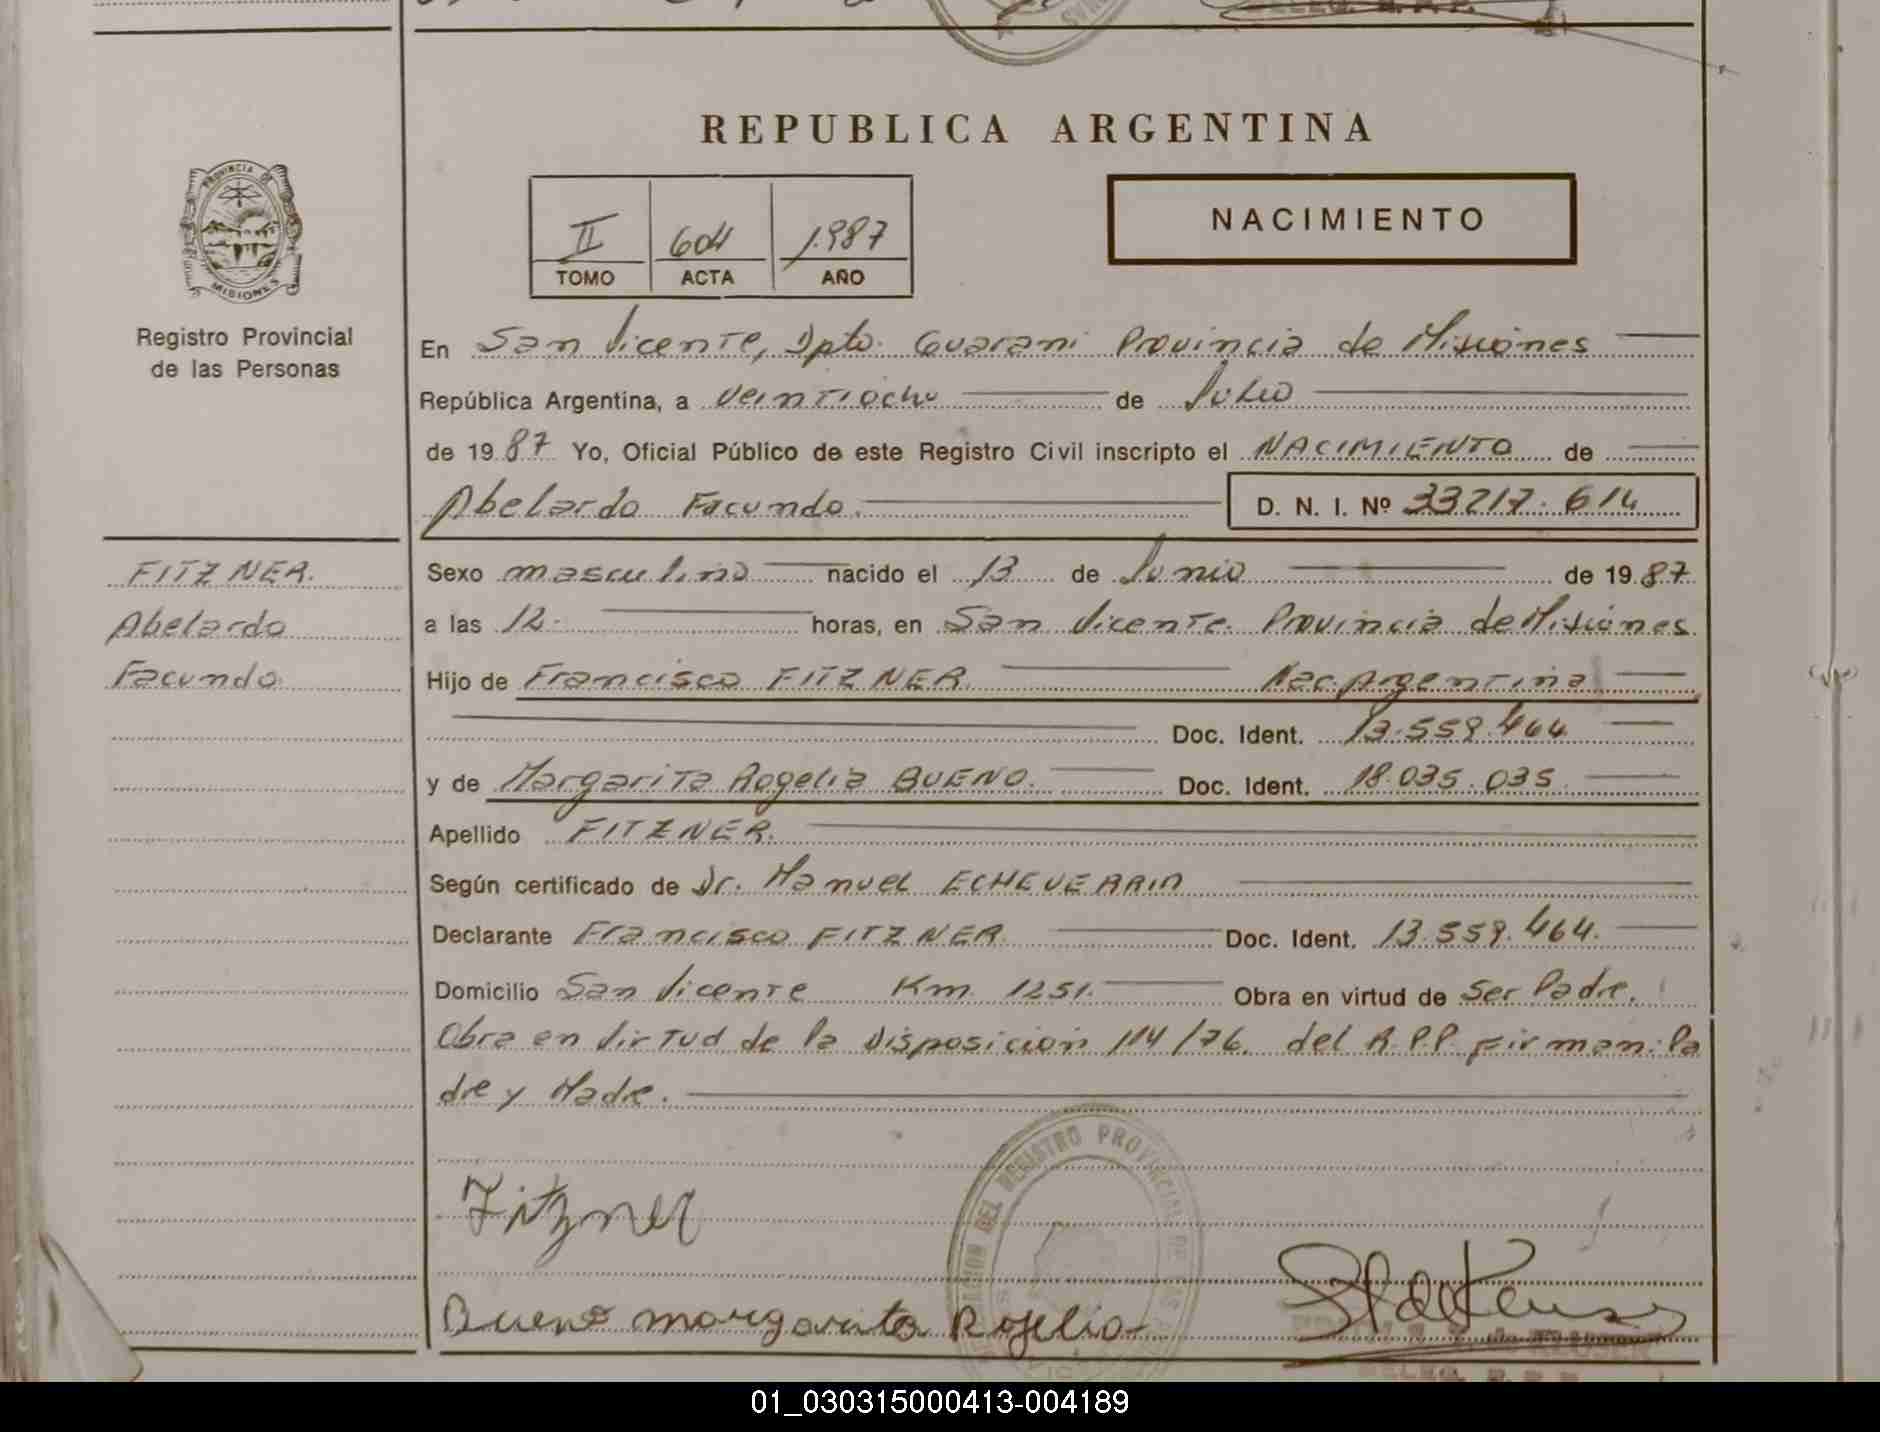 REPUBLICA ARGENTINA
PROVINCIA DE
MISIONES
Registro Provincial
de las Personas
II 604 1.987
TOMO ACTA AÑO
NACIMIENTO
En San Vicente, Dpto. Guarani Provincia de Misiones
República Argentina, a veintiocho de Julio
de 1987 Yo, Oficial Público de este Registro Civil inscripto el NACIMIENTO de
Abelardo Facundo. D. N. I. Nº 33217.614
FITZNER.
Abelardo
Facundo.
Sexo masculino nacido el 13 de Junio de 1987
a las 12. horas, en San Vicente. Provincia de Misiones
Hijo de Francisco FITZNER. Nac. Argentina
Doc. Ident. 13.559.464
y de Margarita Rogelia BUENO. Doc. Ident. 18.035.035
Apellido FITZNER.
Según certificado de Dr. Manuel ECHEVERRIA
Declarante Francisco FITZNER Doc. Ident. 13.559.464.
Domicilio San Vicente Km. 1251. Obra en virtud de Ser Padre.
Obra en virtud de la Disposicion 114/76. del R.P.P. Firman: Pa
dre y Madre.
DEL REGISTRO PROVINCIAL DE LAS
Fitzner
Bueno margarita Rojelia
de KLUSER
DELEG. R. P. P.
01_030315000413-004189